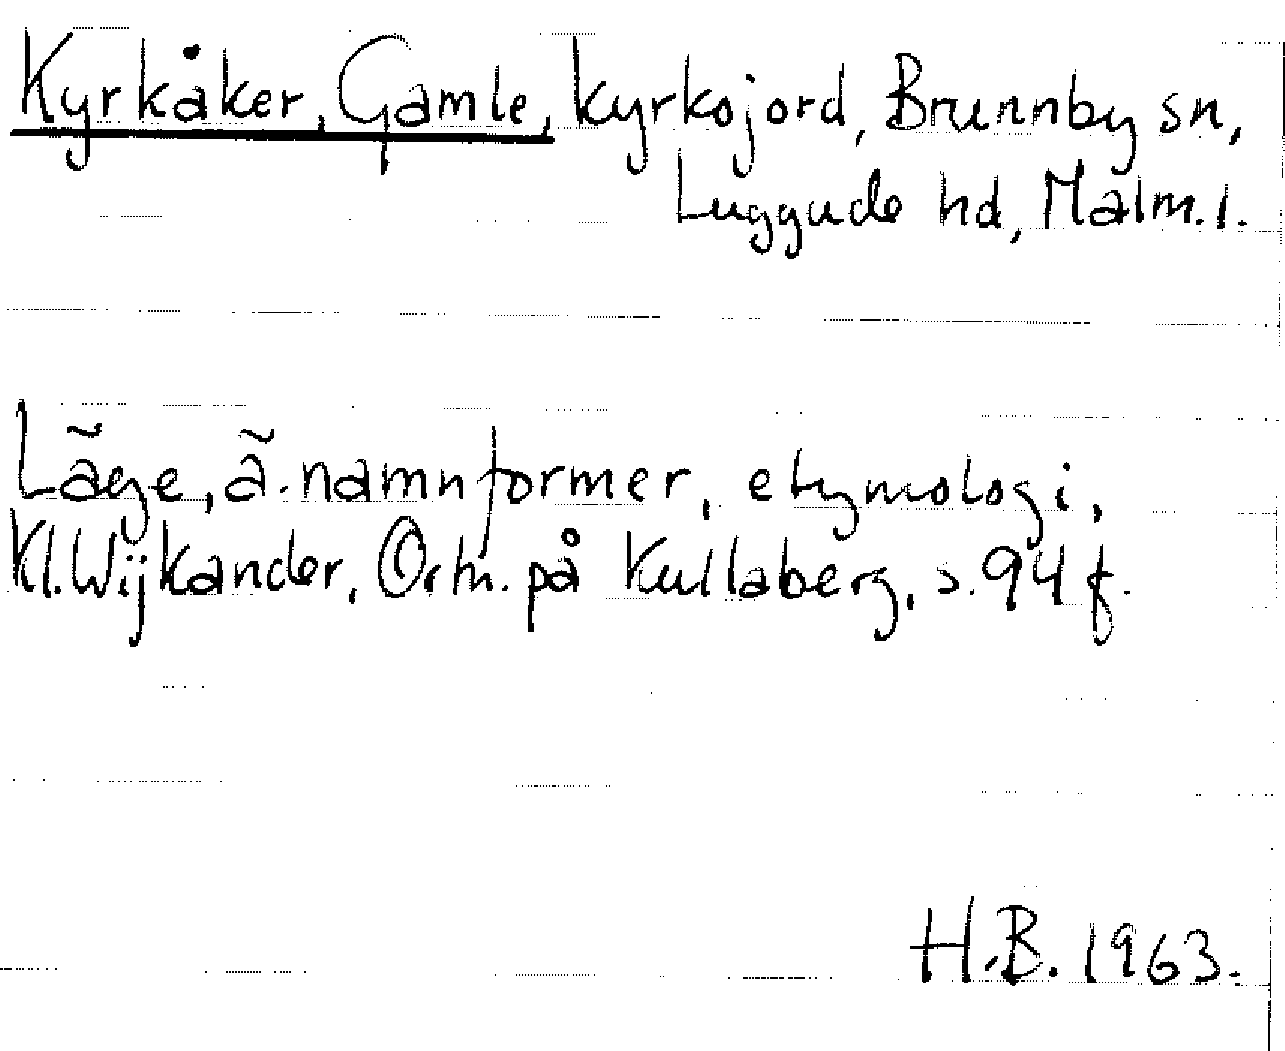 Kyrkåker, Gamle, kyrkojord, Brunnby sn,
Luggude hd, Malm. l.
Läge, ä. namnformer, etymologi,
Kl. Wijkander, Ortn. på Kullaberg, s. 94 f.
H.B. 1963.